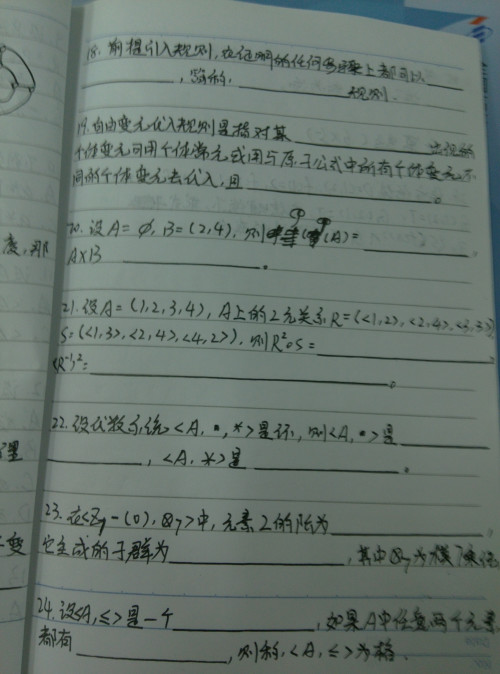 18. 前提引入规则,在证明的任何步骤上都可以
，简称 规则.
19. 自由变元代入规则是指对某 出现的
个体变元可用个体常元或用与原子公式中所有个体变元不
同的个体变元去代入,且 。
20. 设A=∅, B=(2,4), 则 (A)= ，
A×B 。
21. 设A=(1,2,3,4), A上的2元关系R=(<1,2>,<2,4>,<3,3>)
S=(<1,3>,<2,4>,<4,2>), 则R²∘S=
(R⁻¹)²= 。
22. 设代数系统<A, •, *>是环, 则<A, •>是
，<A, *>是 。
23. 在<Z₇-(0), ⊗₇>中, 元素2的阶为 ，
它生成的子群为 ，其中⊗₇为模7乘法
24. 设<A,≤>是一个 ，如果A中任意两个元素
都有 ，则称<A, ≤>为格.